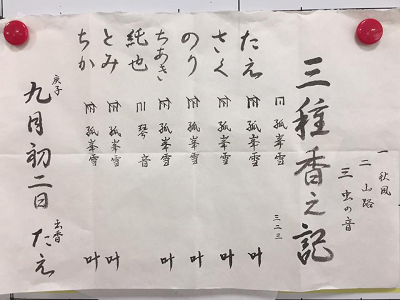 三種香之記
一 秋風
二 山路
三 虫の音
三二三
孤峯雪
たえ 孤峯雪 叶
さく 孤峯雪 叶
のり 孤峯雪 叶
ちあき 孤峯雪 叶
純也 琴音
とみ 孤峯雪 叶
ちか 孤峯雪 叶
庚子
九月初二日 出香 たえ